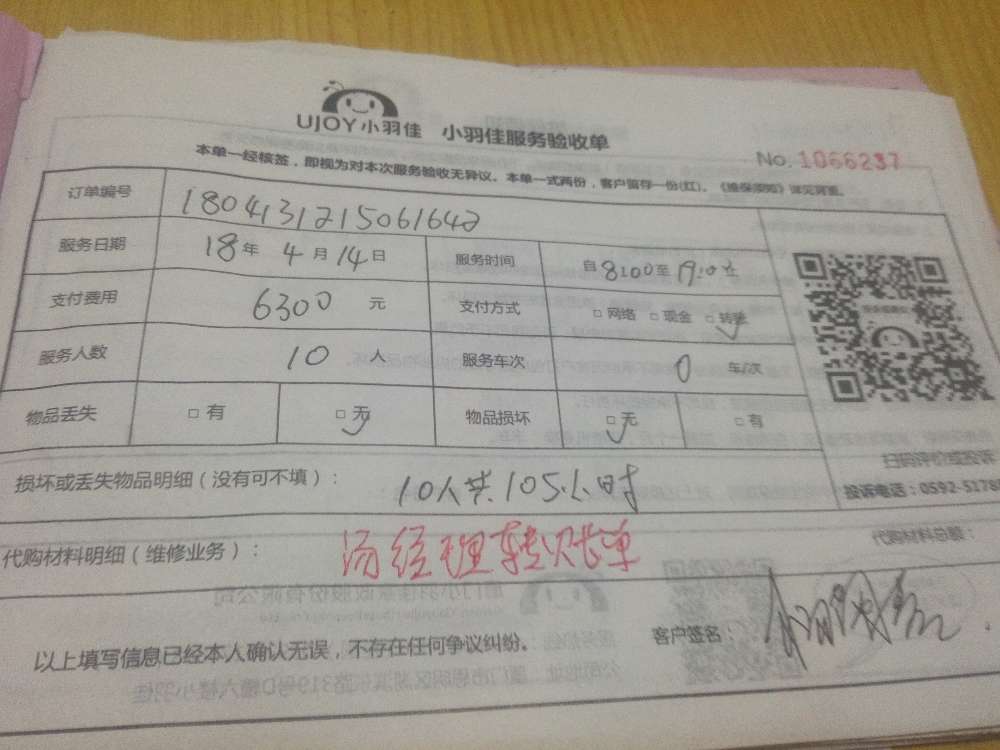 UJOY小羽佳 小羽佳服务验收单
No. 1066237
本单一经核签，即视为对本次服务验收无异议。本单一式两份，客户留存一份(红)。《维保须知》详见背面。
订单编号 1804131215061642
服务日期 18年4月14日 服务时间 自8:00至19:0
支付费用 6300元 支付方式 □网络 □现金 □转账
服务人数 10人 服务车次 0 车/次
物品丢失 □有 □无 物品损坏 □无 □有
扫码评价或投诉
损坏或丢失物品明细（没有可不填）： 10人共105小时
投诉电话：0592-5178
代购材料明细（维修业务）： 汤经理转账单
代购材料总额：
以上填写信息已经本人确认无误，不存在任何争议纠纷。
客户签名：